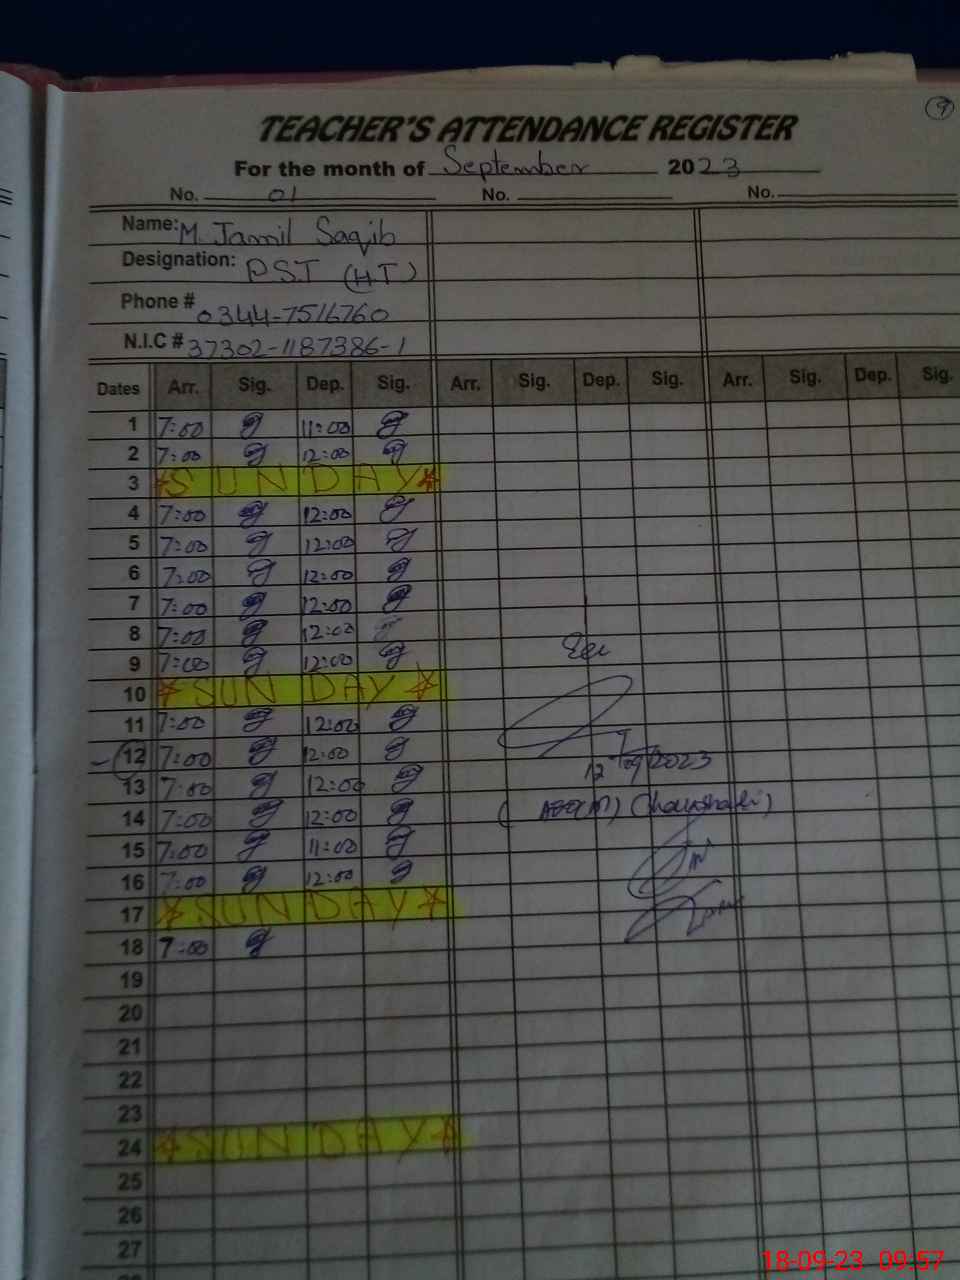 9
TEACHER'S ATTENDANCE REGISTER
For the month of September 2023
No. 01 No. No.
Name: M. Jamil Saqib
Designation: P.S.T (H.T)
Phone # 0344-7516760
N.I.C # 37302-1187386-1
Dates Arr. Sig. Dep. Sig. Arr. Sig. Dep. Sig. Arr. Sig. Dep. Sig.
1 7:00 11:00
2 7:00 12:00
3 SUNDAY
4 7:00 12:00
5 7:00 12:00
6 7:00 12:00
7 7:00 12:00
8 7:00 12:00
9 7:00 12:00
10 SUNDAY
11 7:00 12:00
12 7:00 12:00
12/09/2023
13 7:00 12:00
14 7:00 12:00
15 7:00 11:00
16 7:00 12:00
17 SUNDAY
18 7:00
19
20
21
22
23
24 SUNDAY
25
26
27
18-09-23 09:57